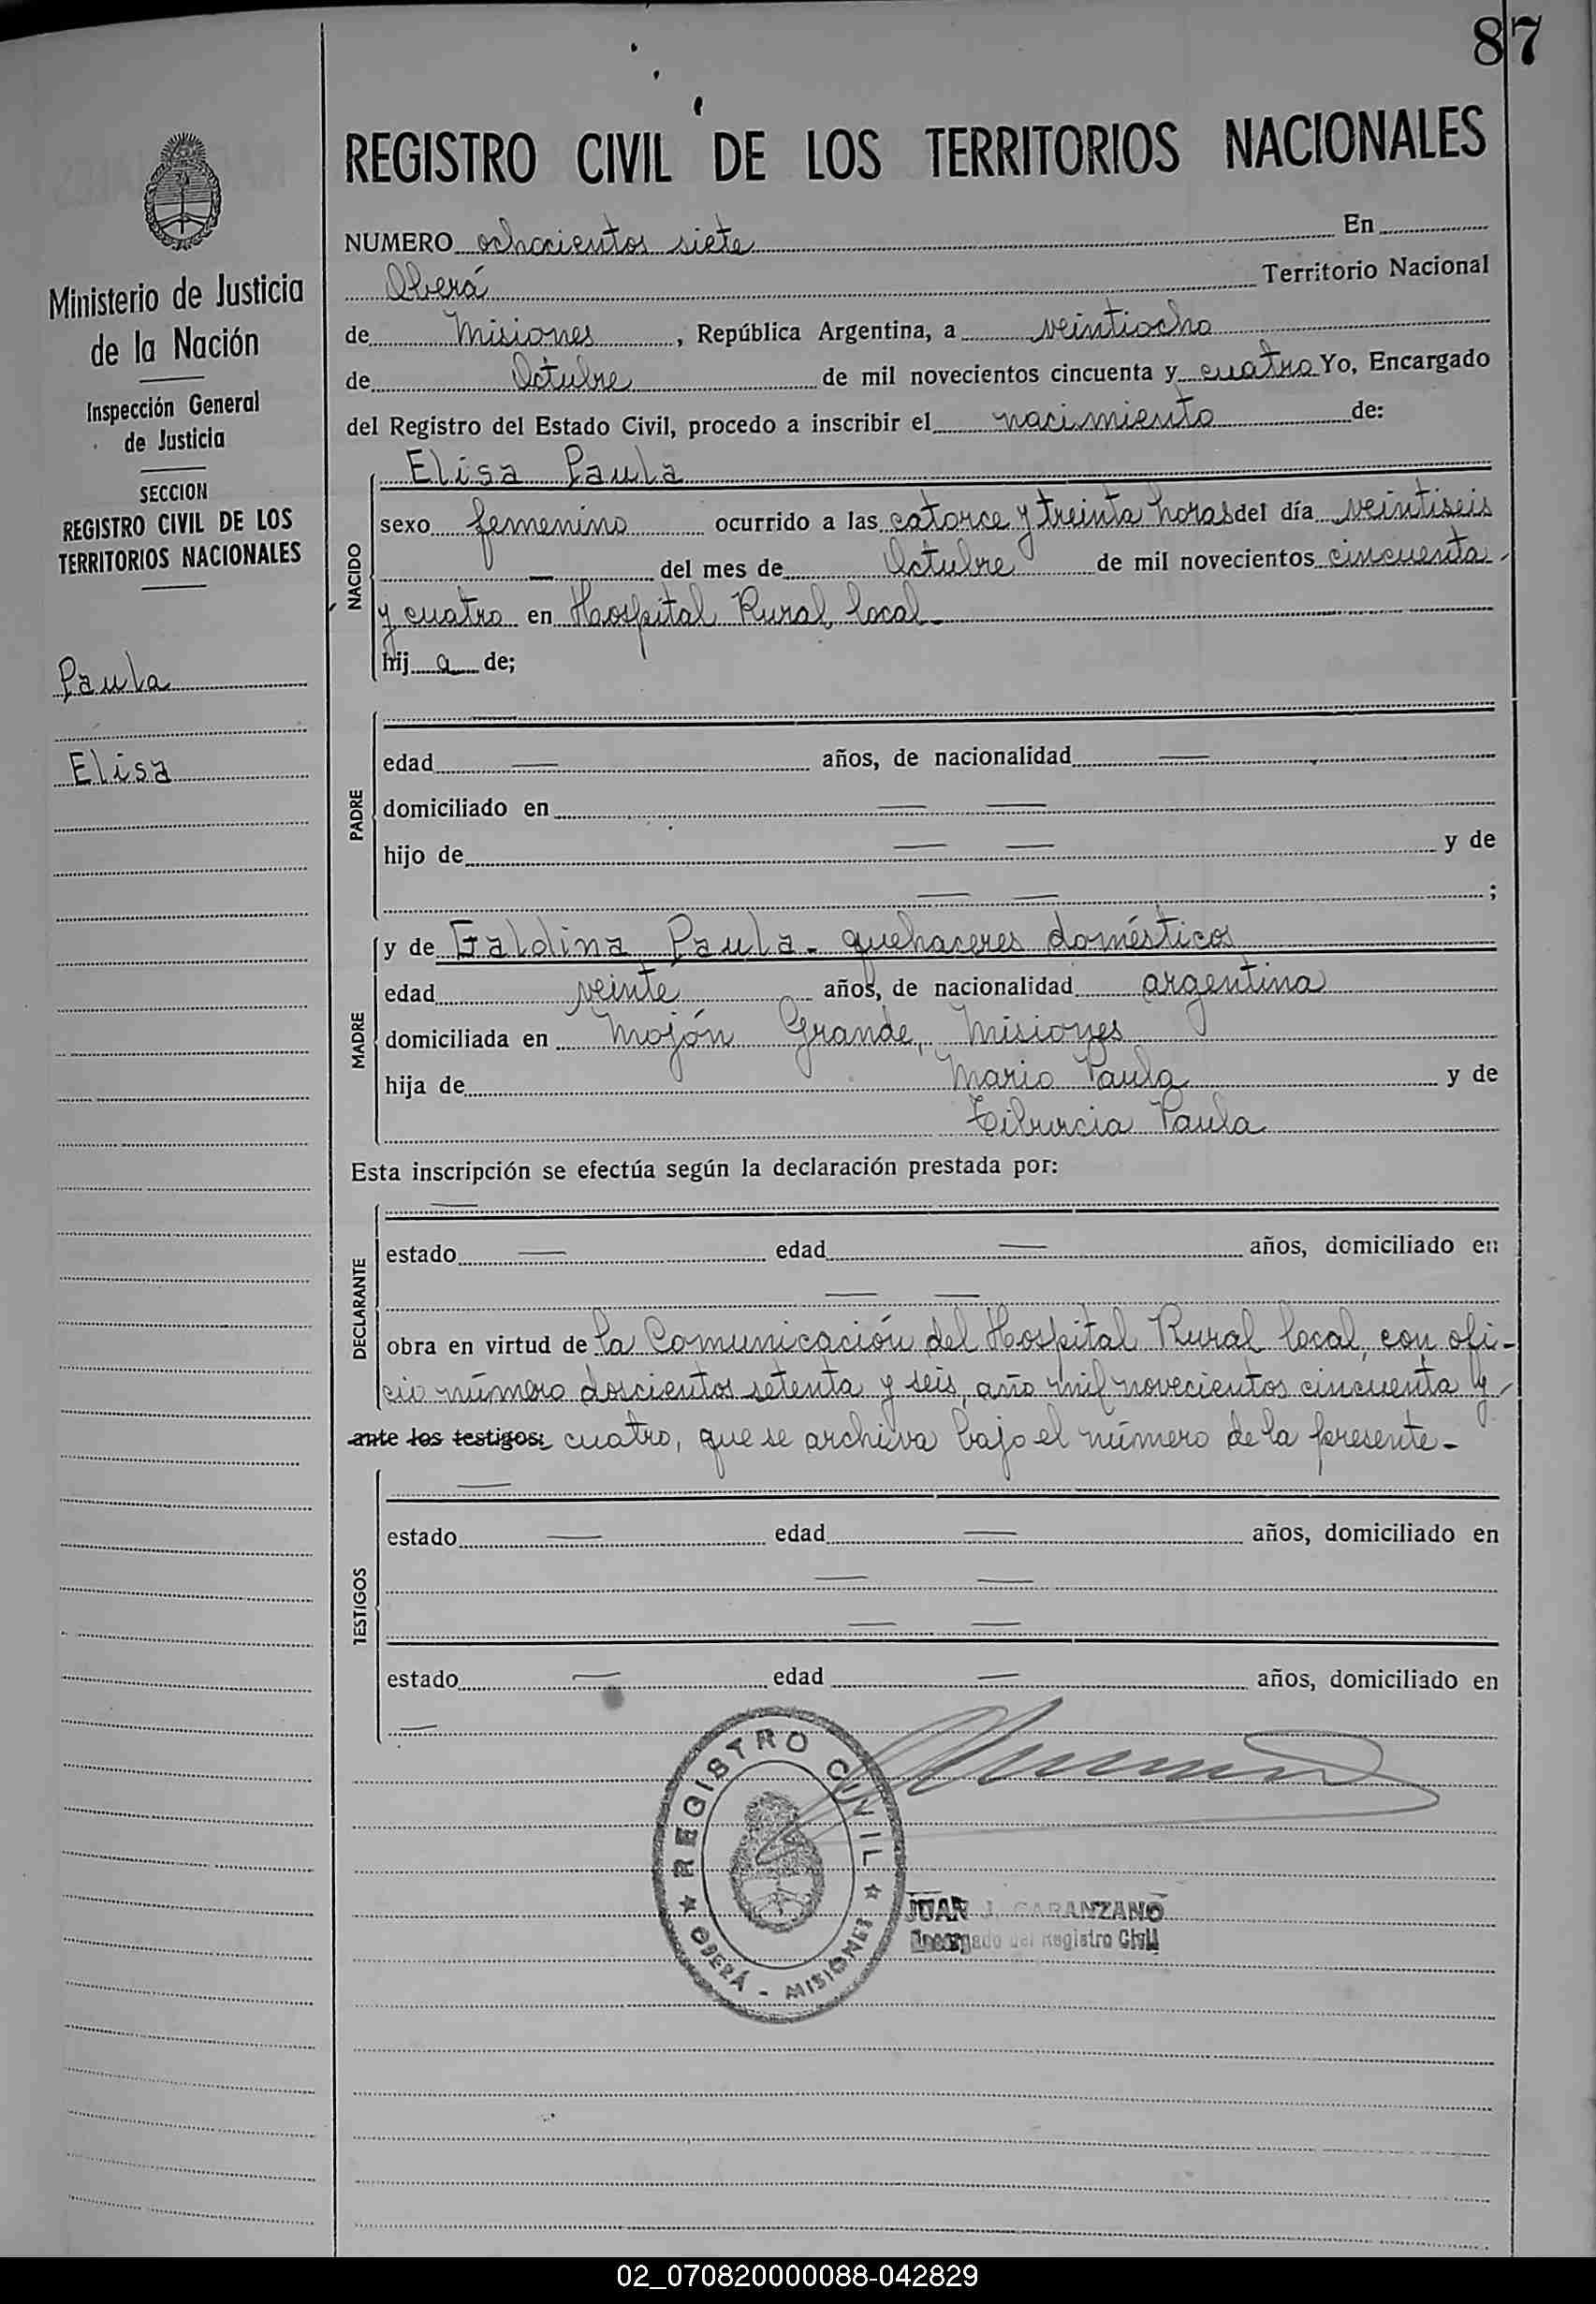 87
REGISTRO CIVIL DE LOS TERRITORIOS NACIONALES
Ministerio de Justicia
de la Nación
Inspección General
de Justicia
SECCION
REGISTRO CIVIL DE LOS
TERRITORIOS NACIONALES
Paula
Elisa
NUMERO ochocientos siete En
Oberá Territorio Nacional
de Misiones, República Argentina, a veintiocho
de Octubre de mil novecientos cincuenta y cuatro Yo, Encargado
del Registro del Estado Civil, procedo a inscribir el nacimiento de:
NACIDO
Elisa Paula
sexo femenino ocurrido a las catorce y treinta horas del día veintiseis
— del mes de Octubre de mil novecientos cincuenta
y cuatro en Hospital Rural local-
hij a de;
PADRE
edad — años, de nacionalidad —
domiciliado en — —
hijo de — — y de
— — ;
MADRE
y de Galdina Paula - quehaceres domésticos
edad veinte años, de nacionalidad argentina
domiciliada en Mojón Grande, Misiones
hija de Mario Paula y de
Tiburcia Paula
Esta inscripción se efectúa según la declaración prestada por:
DECLARANTE
—
estado — edad — años, domiciliado en
— —
obra en virtud de la Comunicación del Hospital Rural local, con ofi-
cio número doscientos setenta y seis, año mil novecientos cincuenta y
ante los testigos: cuatro, que se archiva bajo el número de la presente-
TESTIGOS
—
estado — edad — años, domiciliado en
— —
— —
estado — edad — años, domiciliado en
—
REGISTRO CIVIL
OBERÁ - MISIONES
JUAN J. GARANZANO
Encargado del Registro Civil
02_070820000088-042829